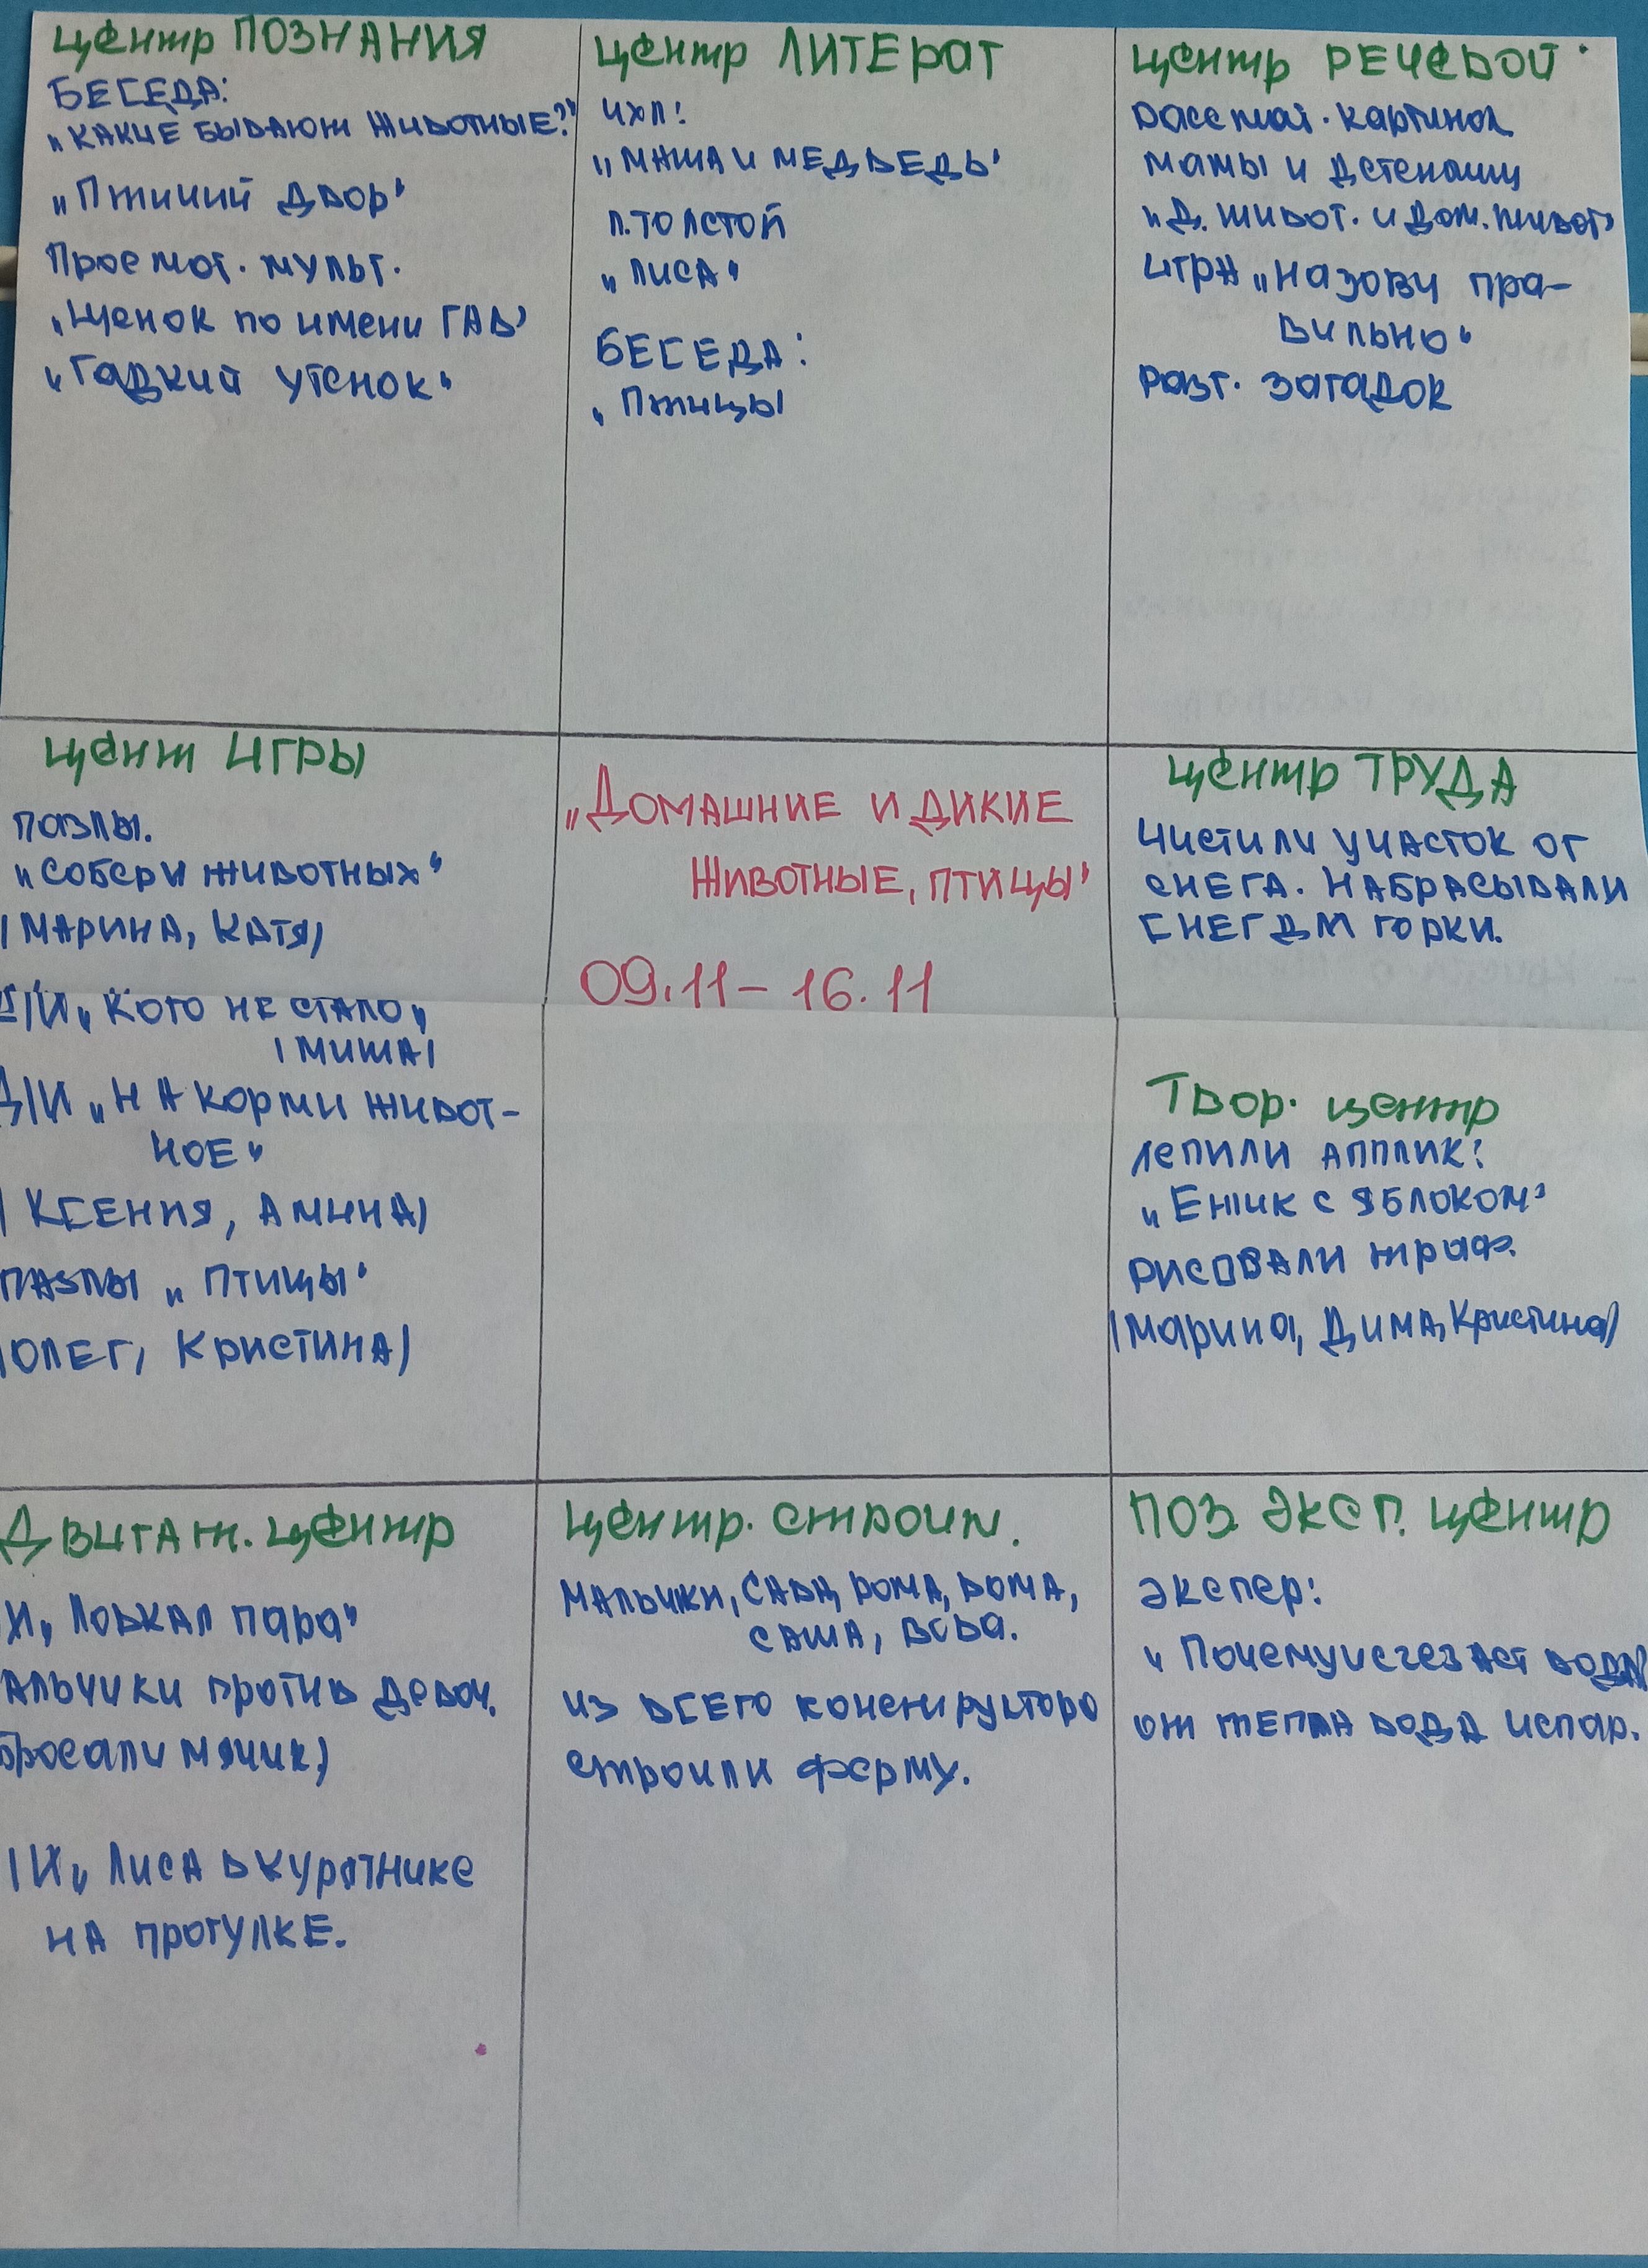 центр ПОЗНАНИЯ
БЕСЕДА:
„КАКИЕ БЫВАЮТ ЖИВОТНЫЕ?"
„Птичий двор"
Просмот. мульт.
„Щенок по имени ГАВ"
„Гадкий утенок"
центр ЛИТЕРАТ
ЧХЛ:
„МАША И МЕДВЕДЬ"
Л.ТОЛСТОЙ
„ЛИСА"
БЕСЕДА:
„Птицы
центр РЕЧЕВОЙ
рассмат. картинок
мамы и детеныши
„Д. живот. и дом. живот"
ИГРА „Назови пра-
вильно"
разг. загадок
цент ИГРЫ
ПАЗЛЫ.
„Собери животных"
(МАРИНА, КАТЯ)
Д/И „Кого не стало„
(МИША)
Д/И „НАкорми живот-
НОЕ"
(КСЕНИЯ, АМИНА)
ПАЗЛЫ „ПТИЦЫ"
(ОЛЕГ, Кристина)
„ДОМАШНИЕ И ДИКИЕ
ЖИВОТНЫЕ, ПТИЦЫ"
09.11 – 16.11
центр ТРУДА
Чистили участок от
СНЕГА. НАБРАСЫВАЛИ
СНЕГ ДЛЯ горки.
Твор. центр
лепили апплик:
„Ежик с яблоком"
рисовали траф.
(Марина, Дима, Кристина)
Двигат. центр
И„ Ловкая пара"
АЛЬЧИКИ против девоч.
бросали мячик)
/И„ Лиса в курятнике
НА прогулке.
центр. строит.
МАЛЬЧИКИ, САВА, РОМА, ВОМА,
САША, ВОВА.
из всего конструкторо
строили ферму.
ПОЗ ЭКСП. центр
экспер:
„Почему исчезает вода
от тепла вода испар.